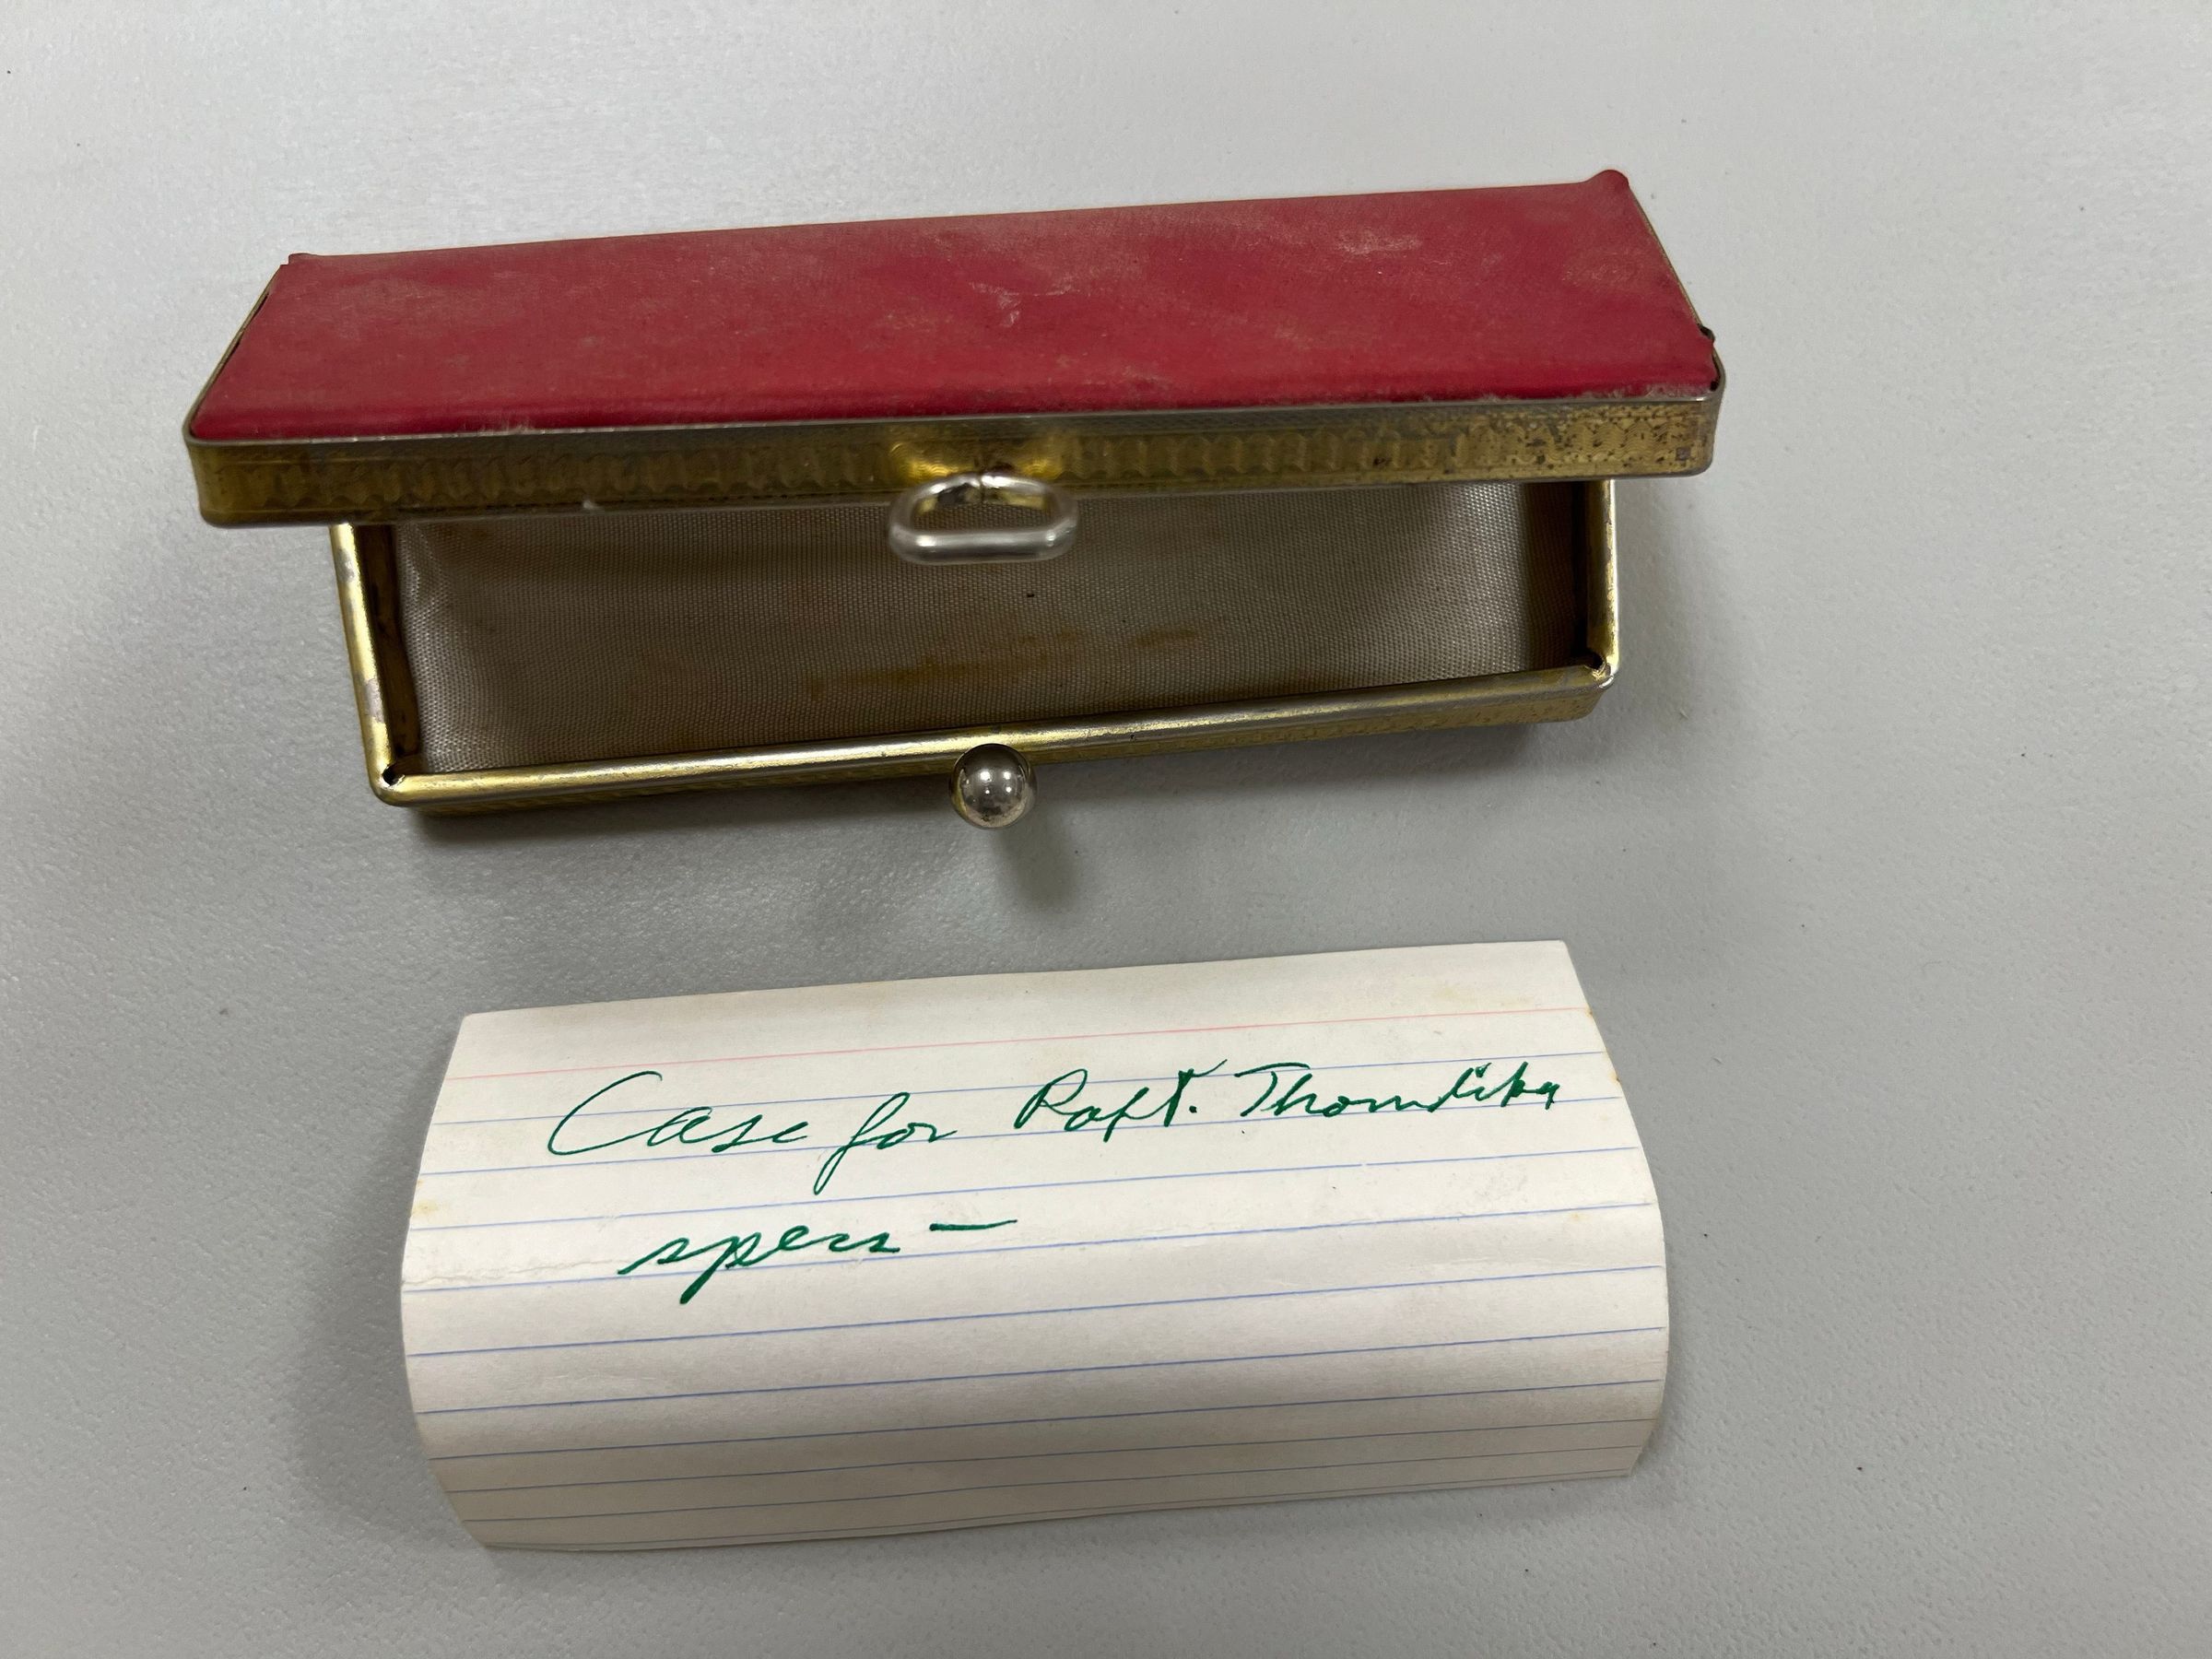 Case for Robt. Thorndike
specs —